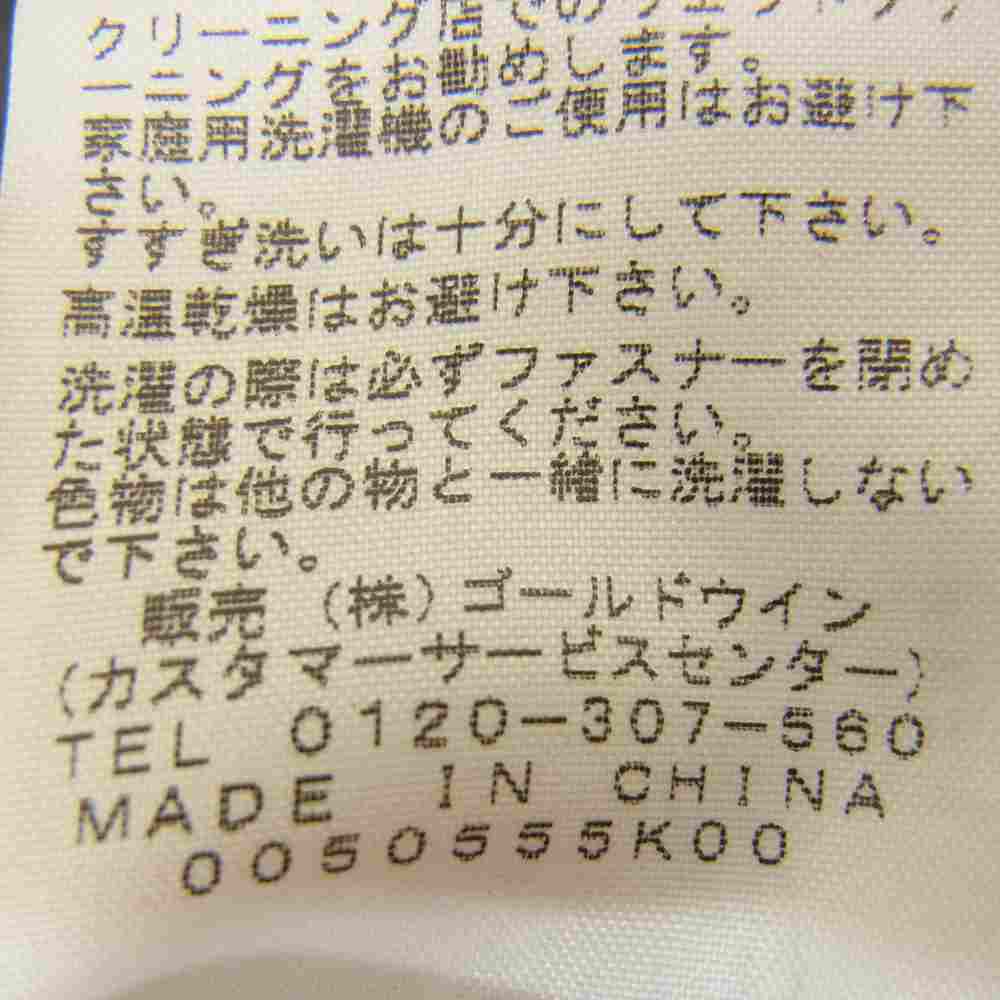 クリーニング店でのウェットクリ
ーニングをお勧めします。
家庭用洗濯機のご使用はお避け下
さい。
すすぎ洗いは十分にして下さい。
高温乾燥はお避け下さい。
洗濯の際は必ずファスナーを閉め
た状態で行ってください。
色物は他の物と一緒に洗濯しない
で下さい。
販売 (株)ゴールドウイン
(カスタマーサービスセンター)
TEL 0120-307-560
MADE IN CHINA
0050555K00